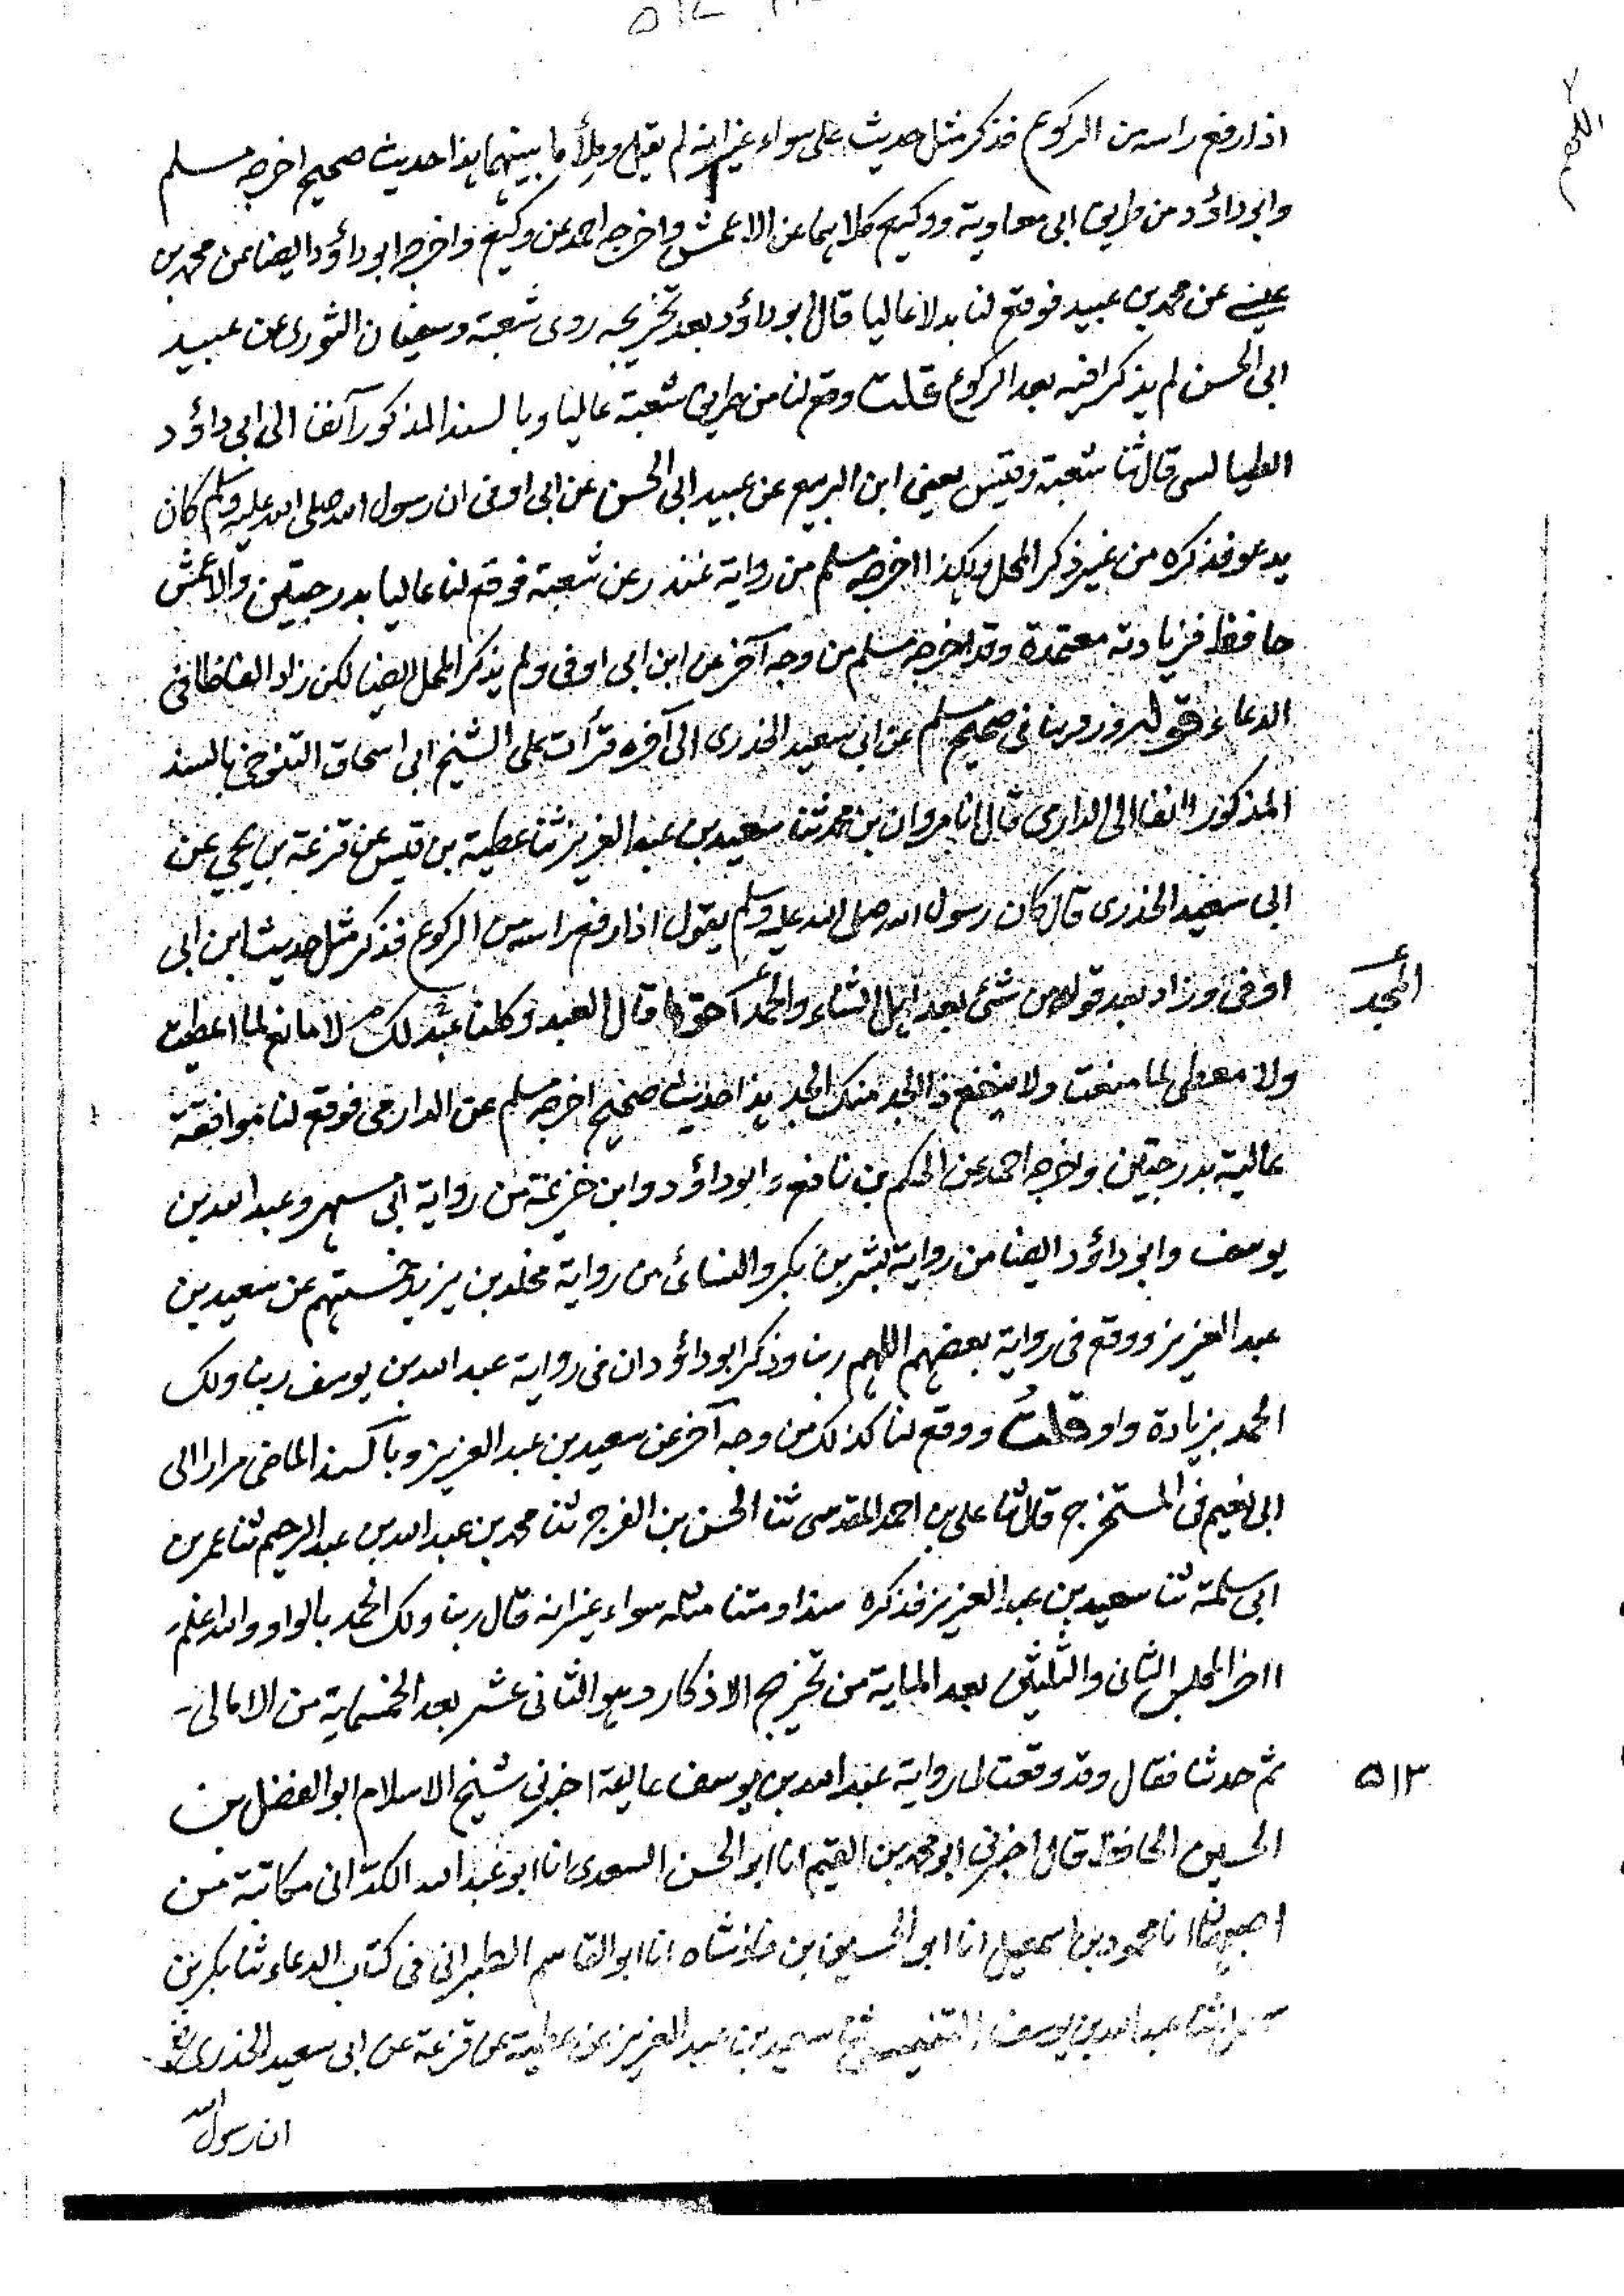 ٥١٢
اذا رفع راسه من الركوع فذكر مثل حديث على سواء غير انه لم يقل وملأ ما بينهما هذا حديث صحيح اخرجه مسلم
وابو داؤد من طريق ابى معاوية ووكيع كلاهما عن الاعمش واخرجه احمد عن وكيع واخرجه ابو داؤد ايضا عن محمد بن
عيسے عن محمد بن عبيد فوقع لنا بدلا عاليا قال ابو داؤد بعد تخريجه روى شعبة وسفيان الثورى عن عبيد
ابى الحسن لم يذكرا فيه بعد الركوع قلت وقع لنا من طريق شعبة عاليا وبالسند المذكور آنفا الى ابى داؤد
الطيالسى قال ثنا شعبة وقيس يعنى ابن الربيع عن عبيد ابى الحسن عن ابى اوفى ان رسول الله صلى الله عليه وسلم كان
يدعو فذكره من غير ذكر المحل وهكذا اخرجه مسلم من رواية غندر عن شعبة فوقع لنا عاليا بدرجتين والاعمش
حافظ فزيادته معتمدة وقد اخرجه مسلم من وجه آخر عن ابن ابى اوفى ولم يذكر المحل ايضا لكن زاد الفاظا فى
الدعاء قوله وروينا فى صحيح مسلم عن ابى سعيد الخدرى الى آخره قرأت على الشيخ ابى اسحاق التنوخى بالسند
المذكور آنفا الى الدارمى قال انا مروان بن محمد ثنا سعيد بن عبد العزيز ثنا عطية بن قيس عن قزعة بن يحيي عن
ابى سعيد الخدرى قال كان رسول الله صلى الله عليه وسلم يقول اذا رفع راسه من الركوع فذكر مثل حديث ابن ابى
اوفى وزاد بعد قوله من شئ بعد اهل الثناء والحمد احق ما قال العبد وكلنا عبد لك لا مانع لما اعطيت
المجد
ولا معطى لما منعت ولا ينفع ذا الجد منك الجد هذا حديث صحيح اخرجه مسلم عن الدارمى فوقع لنا موافقة
عالية بدرجتين واخرجه احمد عن الحكم بن نافع وابو داؤد وابن خزيمة من رواية ابى مسهر وعبد الله بن
يوسف وابو داؤد ايضا من رواية بشر بن بكر والنسائى من رواية مخلد بن يزيد خمستهم عن سعيد بن
عبد العزيز ووقع فى رواية بعضهم اللهم ربنا وذكر ابو داؤد ان فى رواية عبد الله بن يوسف ربنا ولك
الحمد بزيادة واو قلتُ ووقع لنا كذلك من وجه آخر عن سعيد بن عبد العزيز وبالسند الماضى مرارا الى
ابى نعيم فى المستخرج قال ثنا على بن احمد المقدسى ثنا الحسن بن الفرج ثنا محمد بن عبد الله بن عبد الرحيم ثنا عمر بن
ابى سلمة ثنا سعيد بن عبد العزيز فذكره سندا ومتنا مثله سواء غير انه قال ربنا ولك الحمد بالواو والله اعلم
اخر المجلس الثانى والثلثين بعد الماية من تخريج الاذكار وهو الثانى عشر بعد الخمسماية من الامالى-
ثم حدثنا فقال وقد وقعت لى رواية عبد الله بن يوسف عالية اخبرنى شيخ الاسلام ابو الفضل بن
٥١٣
الحسين الحافظ قال اخبرنى ابو محمد بن القيم انا ابو الحسن السعدى انا ابو عبد الله الكرانى مكاتبة من
اصبهان انا محمود بن اسمعيل انا ابو الحسين بن فاذشاه انا ابو القاسم الطبرانى فى كتاب الدعاء ثنا بكر بن
سهل ثنا عبد الله بن يوسف ثنا سعيد بن عبد العزيز عن عطية عن قزعة عن ابى سعيد الخدرى
ان رسول الله